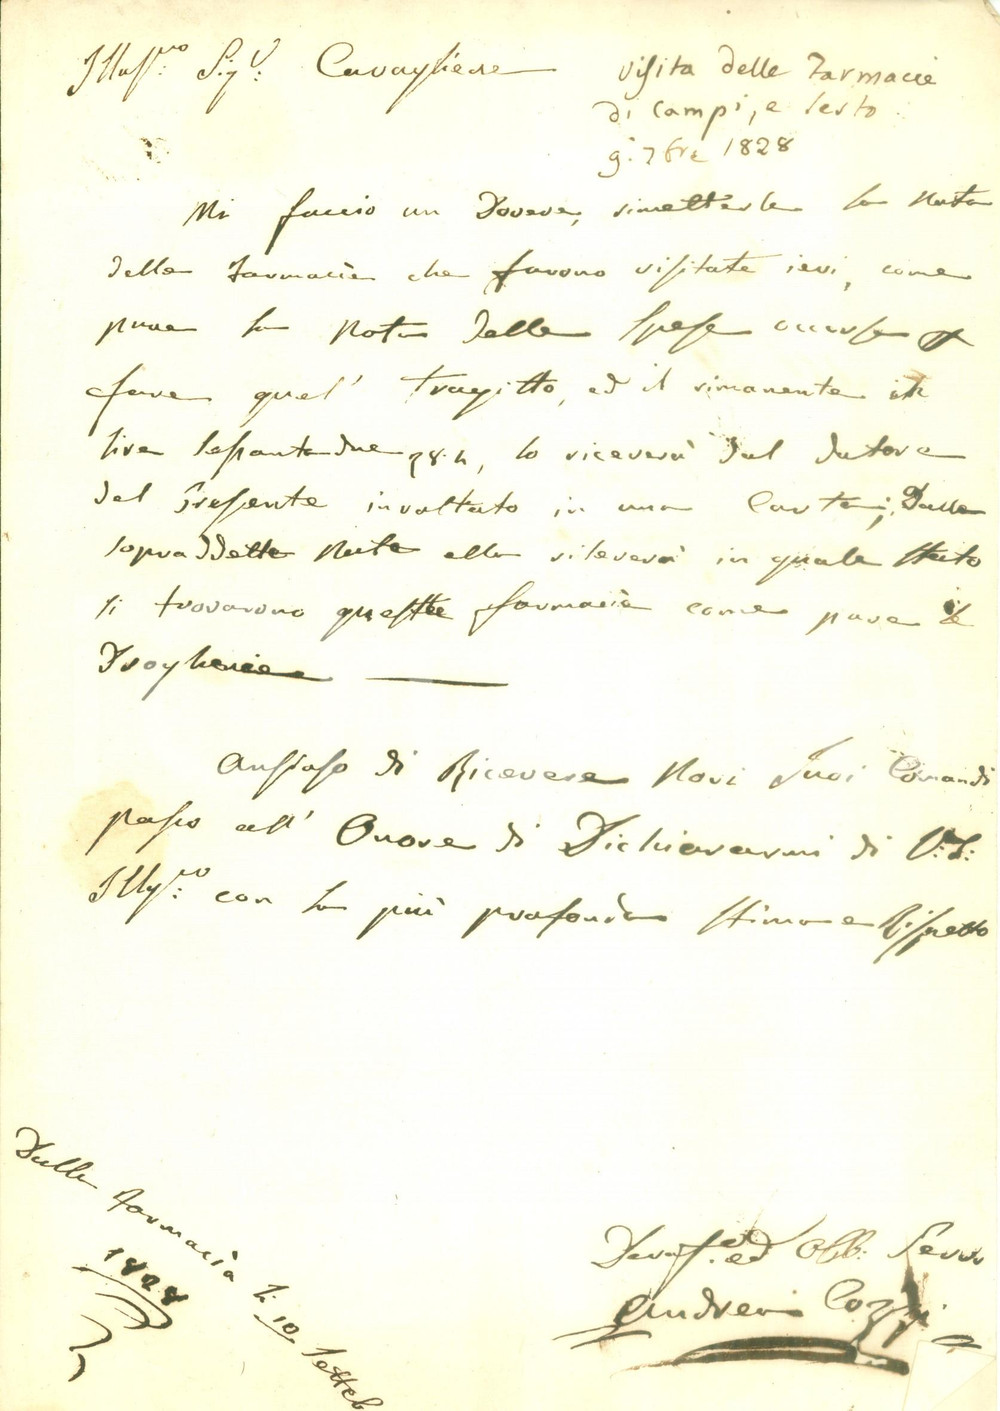 Illus.mo Sig.r Cavagliere
visita delle Farmacie
di Campi, e Sesto
9. 7bre 1828
Mi faccio un Dovere, rimetterle la Nota
delle Farmacie che furono visitate ieri, come
pure la Nota delle Spese occorse
fare quel' Tragitto, ed il rimanente in
lire Sessantadue, lo riceverà dal latore
del Presente involtato in una Carta; Dalle
sopraddette Note ella rileverà in quale Stato
si trovarono queste farmacie come pure le
Drogherie
Ansioso di Ricevere Novi Suoi Comandi
passo all' Onore di Dichiararmi di V: S:
Illus.mo con la più profonda Stima e Rispetto
Dalla Farmacia li 10 Setteb
1828
Devos.o ed Obb: Servo
Andrea Cozzi